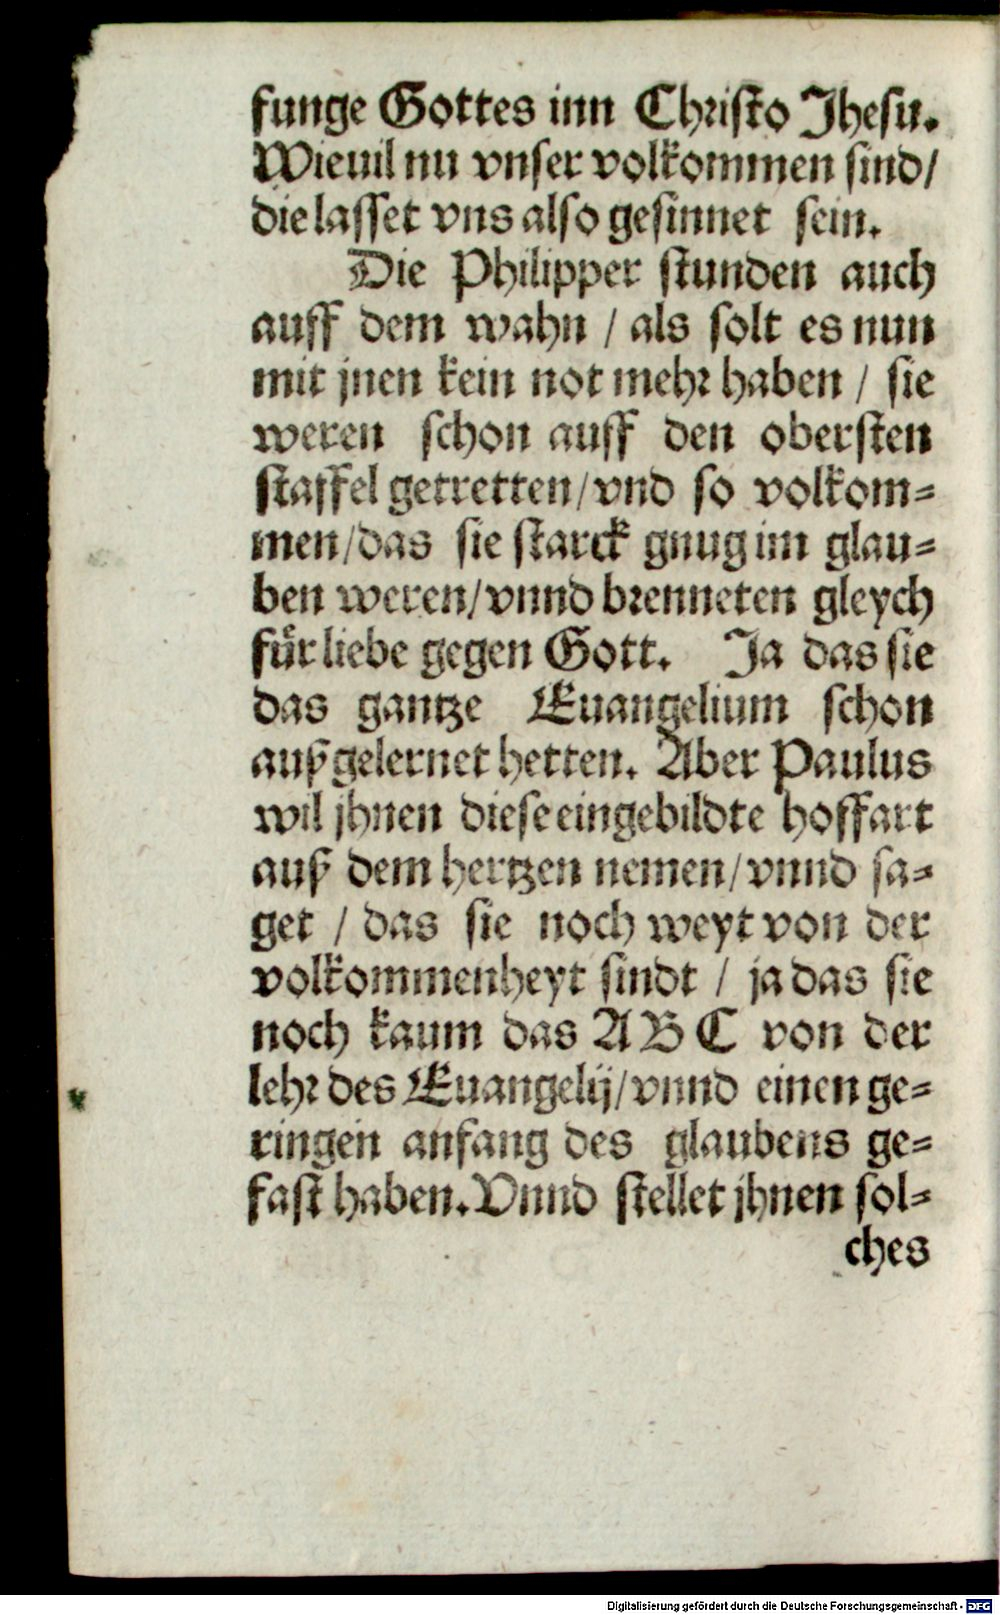 funge Gottes inn Chriſto Jheſu.
Wieuil nu vnſer volkommen ſind/
die laſſet vns alſo geſinnet ſein.
Die Philipper ſtunden auch
auff dem wahn / als ſolt es nun
mit jnen kein not mehr haben / ſie
weren ſchon auff den oberſten
ſtaffel getretten/vnd ſo volkom⸗
men/das ſie ſtarck gnug im glau⸗
ben weren/vnnd brenneten gleych
fuͤr liebe gegen Gott. Ja das ſie
das gantze Euangelium ſchon
auß gelernet hetten. Aber Paulus
wil jhnen dieſe eingebildte hoffart
auß dem hertzen nemen/vnnd ſa⸗
get / das ſie noch weyt von der
volkommenheyt ſindt / ja das ſie
noch kaum das A B C von der
lehr des Euangelij/vnnd einen ge⸗
ringen anfang des glaubens ge⸗
faſt haben. Vnnd ſtellet jhnen ſol⸗
ches
Digitalisierung gefördert durch die Deutsche Forschungsgemeinschaft - DFG